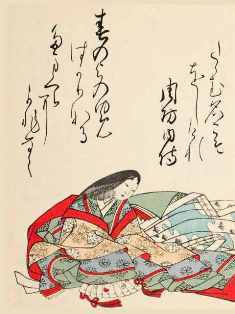 たゝむ名こそ
をしけれ
周防内侍
春のよの夢
はかりなる
かひなく